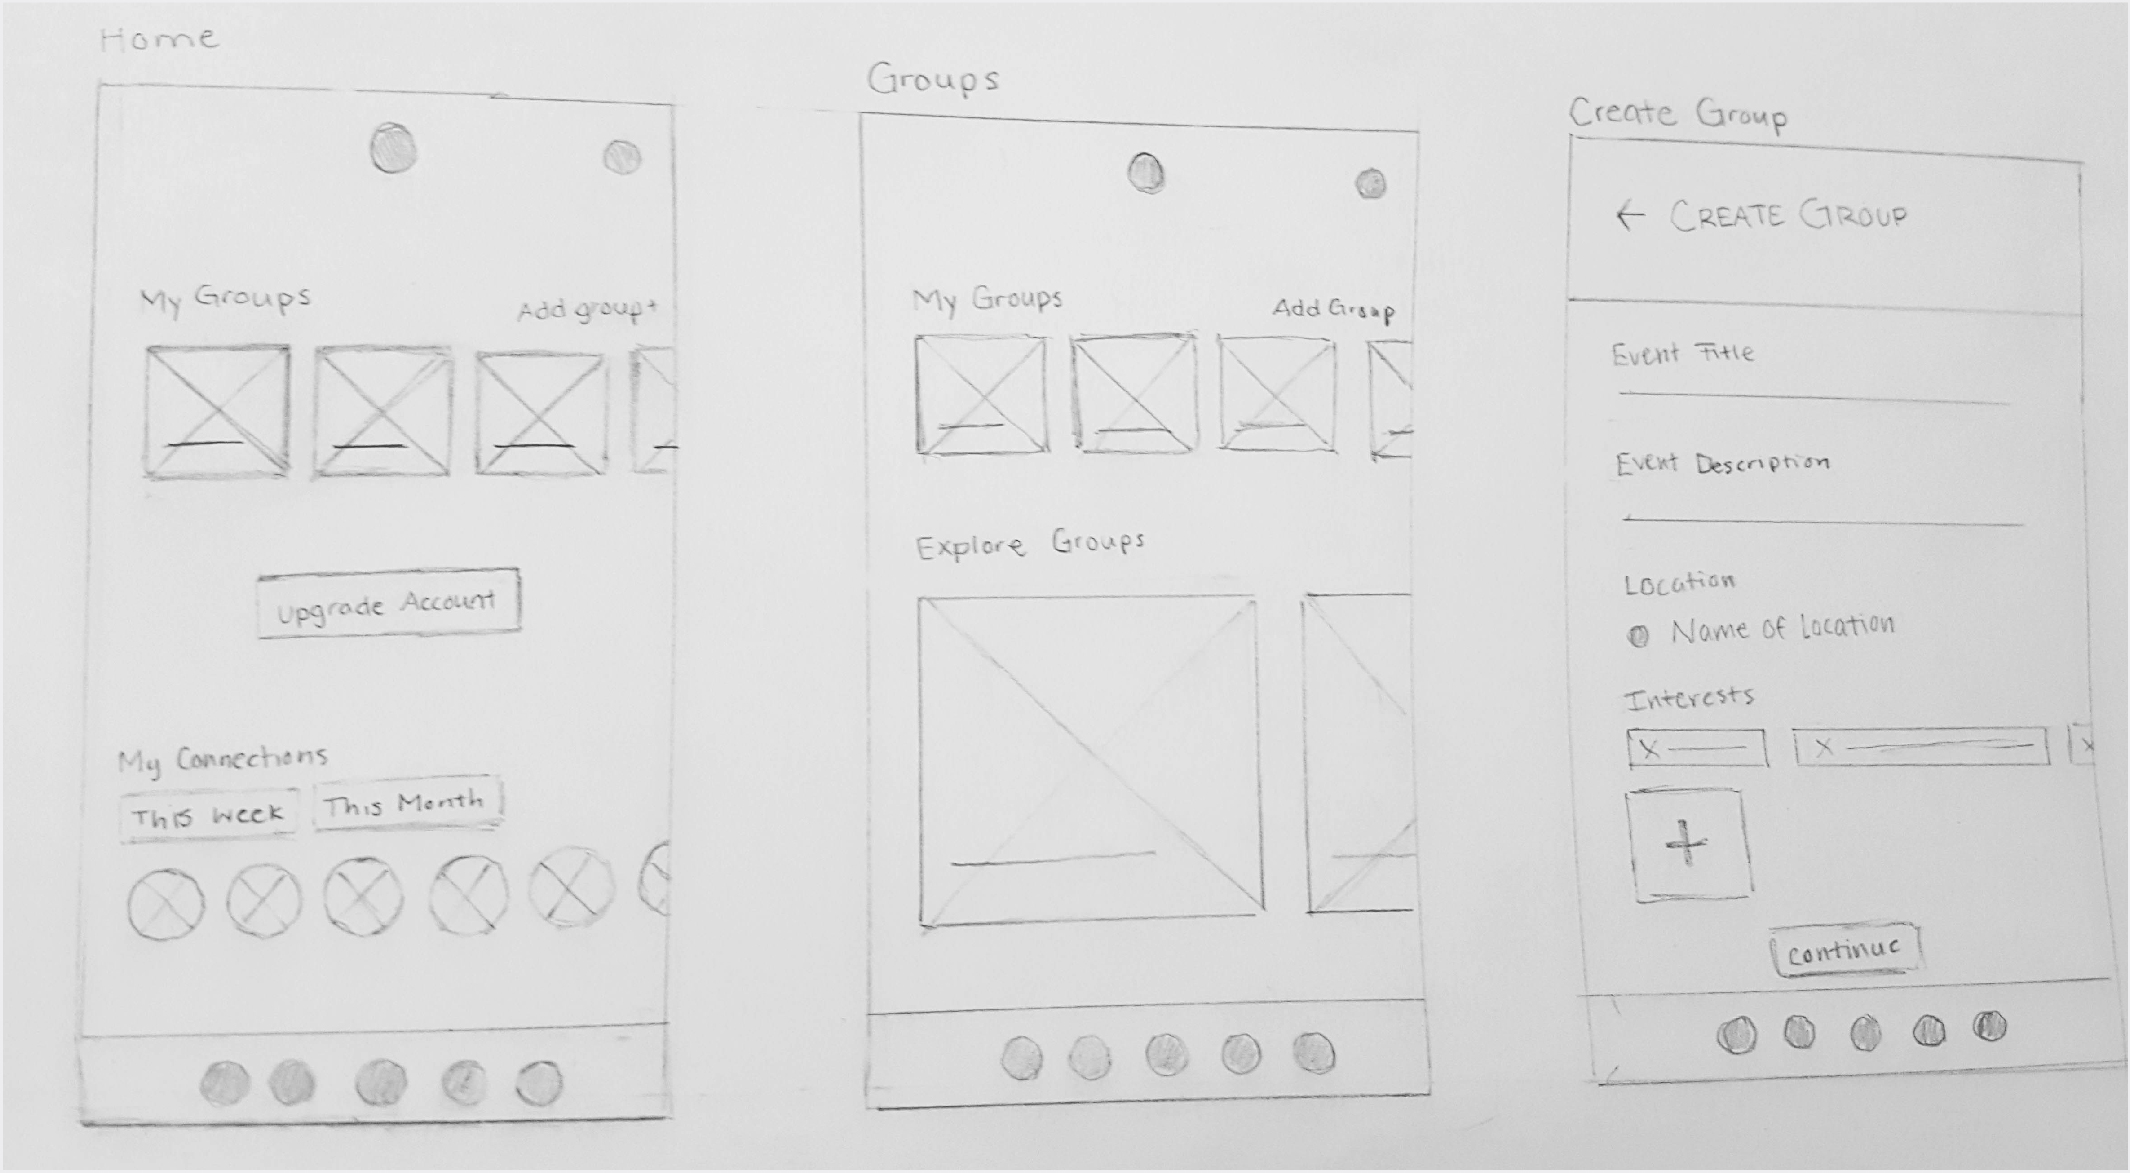 Home
My Groups
Add group+
Upgrade Account
My Connections
This week
This Month
Groups
My Groups
Add Group
Explore Groups
Create Group
← CREATE GROUP
Event Title
Event Description
Location
Name of Location
Interests
X
X
X
+
continue